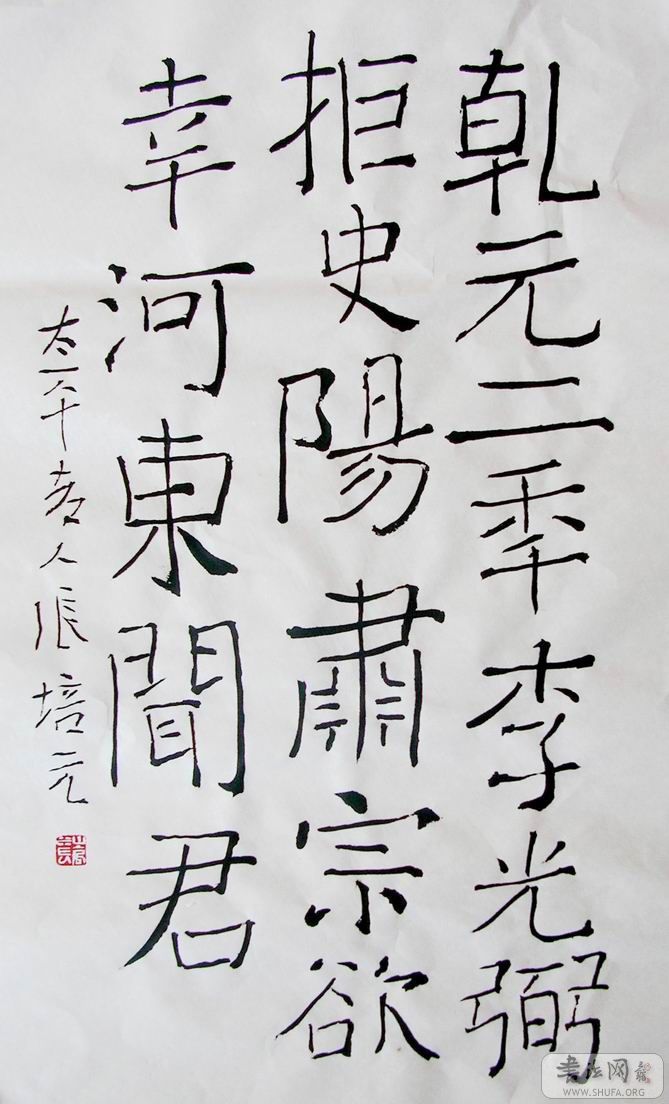 乹元二秊李光弼
拒史陽肅宗欲
幸河東聞君
太平老人張培元
書法网
WWW.SHUFA.ORG